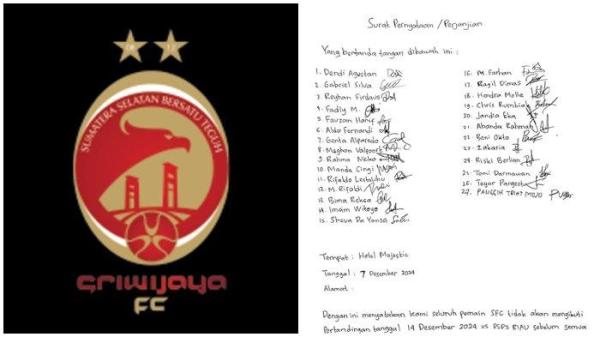 08 12
SUMATERA SELATAN BERSATU TEGUH
SRIWIJAYA
FC
Surat Pernyataan / Perjanjian
Yang bertanda tangan dibawah ini :
1. Dendi Agustan
2. Gabriel Silva
3. Reyhan Firdaus
4. Fadly M.
5. Fauzan Hanif
6. Aldo Fernandi
7. Genta Alparedo
8. Meghon Valpoort
9. Rahma Nicko
10. Manda Cingi
11. Rifaldo Lestaluhu
12. M. Rifaldi
13. Bima Reksa
14. Imam Witoyo
15. Sheva Da Vansa
16. M. Farhan
17. Ragil Dimas
18. Hendra Molle
19. Chris Rumbiak
20. Jandia Eka
21. Abanda Rahman
22. Beni Okto
23. Zakaria
24. Riski Berlian
25. Toni Darmawan
26. Tegar Pangest
27. PANGGIH TRIATMOJO
Tempat : Hotel Majestic
Tanggal : 7 Desember 2024
Alamat :
Dengan ini menyatakan kami seluruh pemain SFC tidak akan mengikuti
Pertandingan tanggal 14 Desember 2024 vs PSPS RIAU sebelum semua